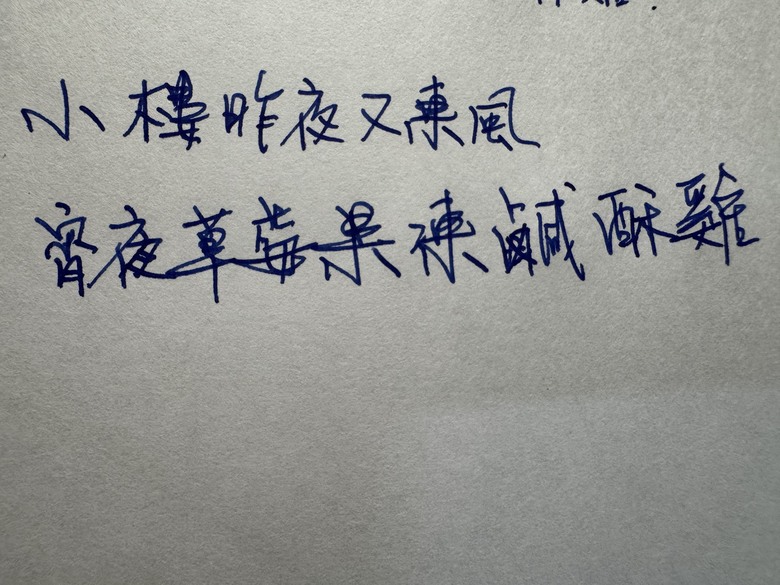 小樓昨夜又東風
宵夜草莓果凍鹹酥雞